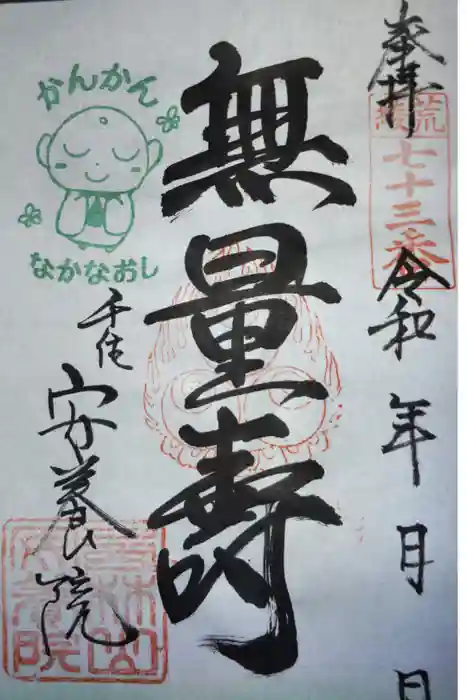 奉拝
荒綾
七十三番
令和 年 月 日
無量寿
かんかん
なかなおし
千住
安養院